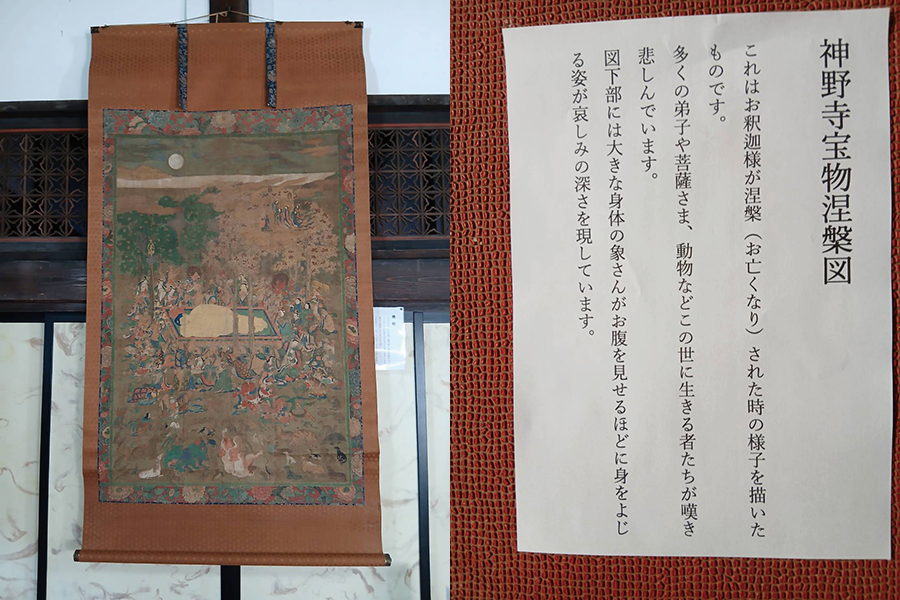 神野寺宝物涅槃図
これはお釈迦様が涅槃（お亡くなり）された時の様子を描いた
ものです。
多くの弟子や菩薩さま、動物などこの世に生きる者たちが嘆き
悲しんでいます。
図下部には大きな身体の象さんがお腹を見せるほどに身をよじ
る姿が哀しみの深さを現しています。